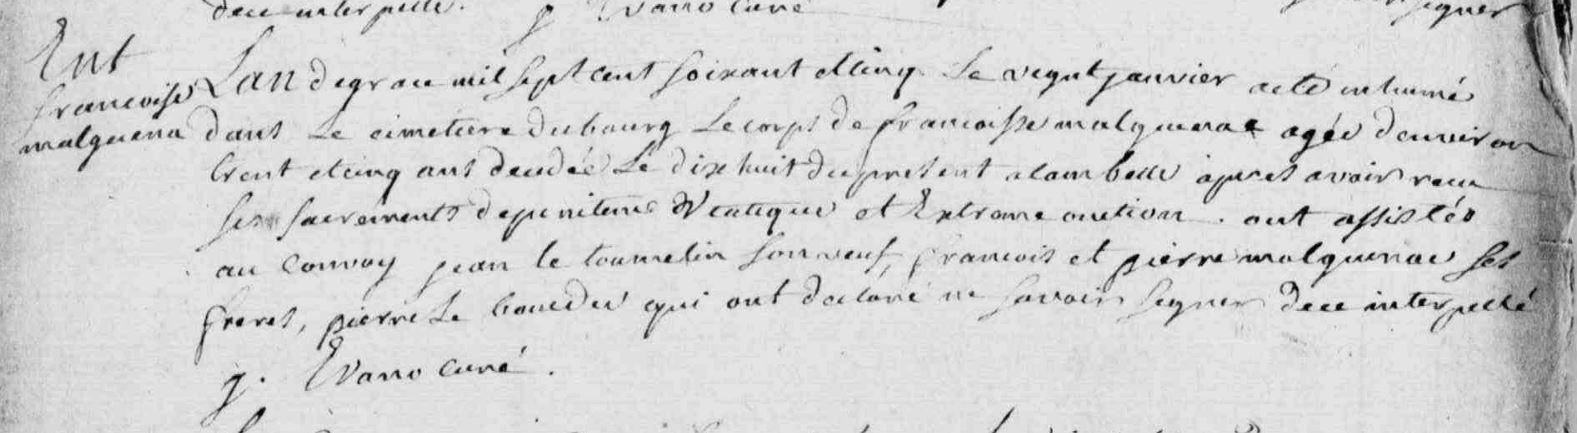 dece interpellé. g Evano curé segner
Ent
francoise
malguenac
Lan de grace mil sept cent soixant et cinq Le vegnt janvier a eté inhumé
dans Le cimetiere du bourg Le corps de francoisse malguenac agée denviron
trent et cinq ans decedée Le dixhuit du present a lambelle apres avoir recu
ses sacrements de penitence Viatique et Extreme onction. ont assistés
au convoy jean le toumelin son veuf, francois et pierre malguenac ses
freres, pierre Le bouedec qui ont declaré ne savoir segner dece interpellé
g. Evano curé.